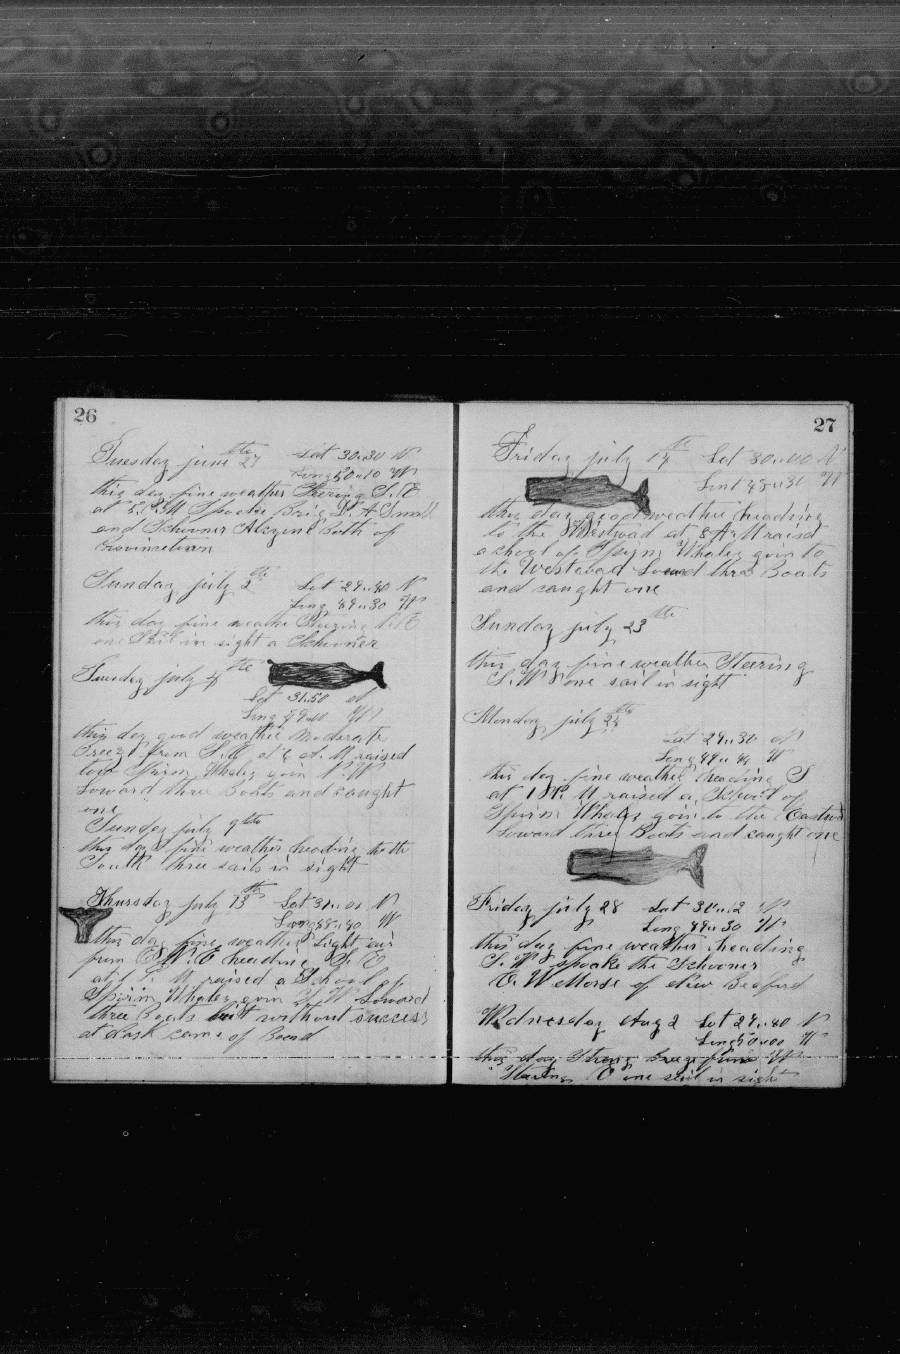 26
Tuesday june 27th Lat 30..30 N
Long 50..10 W
this day fine weather Steering S.E
at 5 P.M Spooke Brig D. A Small
and Schooner Alcyone Both of
Provincetown
Sunday july 2th Lat 29..40 N
Long 49..30 W
this day fine weathe Steering N.E
one Sail in sight a Schooner
Tuesday july 4th
Lat 31..50 N
Long 49..10 W
this day good weathe moderate
Breeze from S.E at 6 A. M raised
tow Spirm Whales goin N.W
Loward three Boats and caught
one
Sunday july 9th
this day fine weather heading to the
South three sails in sight
Thursday july 13th Lat 31..01 N
Long 48..40 W
this day fine weather Light air
from N.E heading S. E
at M raised a School of
Spirm Whales goin N.W Loward
three Boats but without success
at dark came of Board
27
Friday july 14th Lat 30..00 N
Lont 48..30 W
this day good weathe heading
to the Westward at 8 A.M raised
a chool of Spirm Whales goin to
the Westward Loward three Boats
and caught one
Sunday july 23th
this day fine weather Steering
S.W one sail in sight
Monday july 24th
Lat 29..30 N
Long 49..44 W
this day fine weathe heading S
at 1 P. M raised a School of
Spirm Whales goin to the Eastwd
Loward three Boats and caught one
Friday july 28 Lat 30..12 N
Long 49..30 W
this day fine weather heading
S.W spooke the Schooner
E. W Morse of New Bedford
Wednesday Aug 2 Lat 29..40 N
Long 50..00 W
this day Strong breeze from W
Staring E one sail in sight